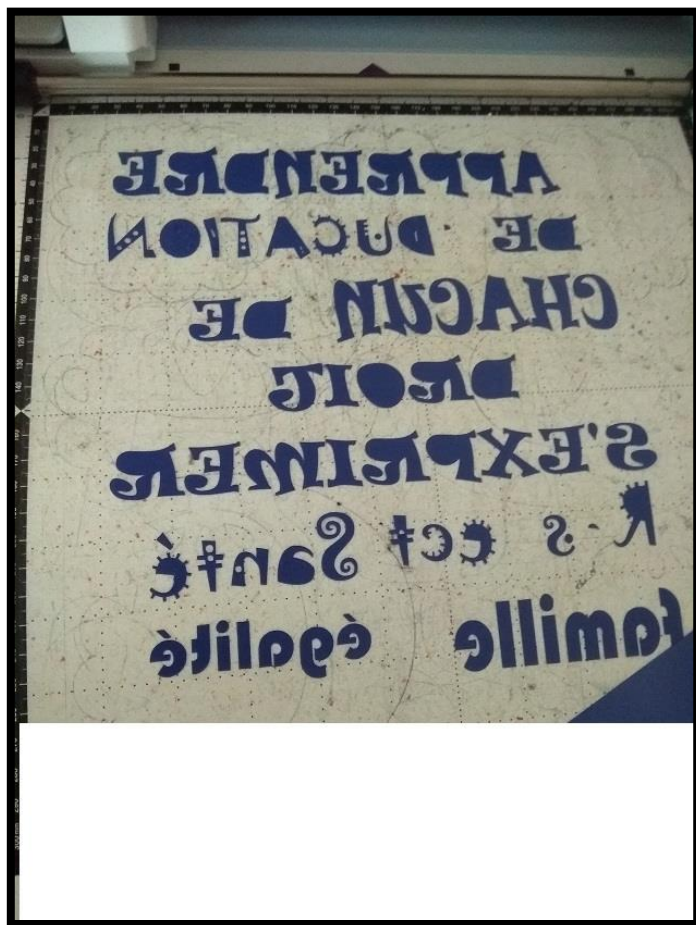 APPRENDRE
DE DUCATION
CHACUN DE
DROIT
S'EXPRIMER
R s ect Santé
famille égalité